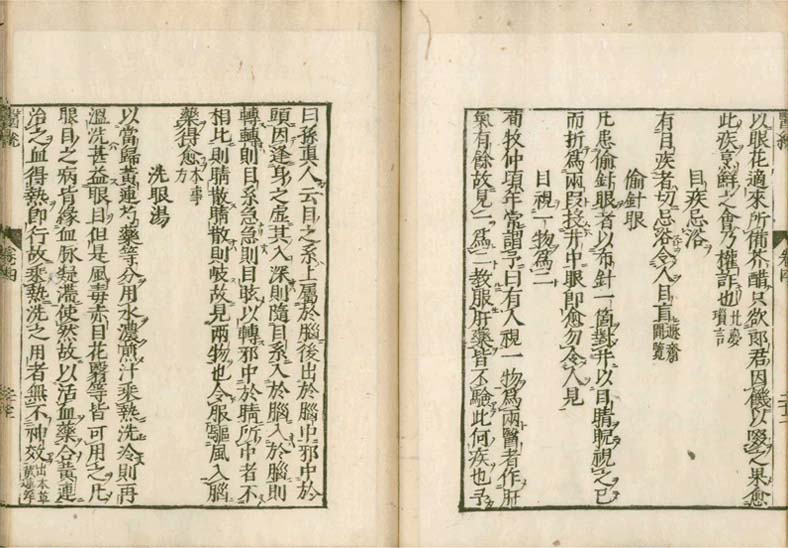 以眼花適來所備芥醋只欲郎君因饑以啜之果愈
此疾烹鮮之會乃權詐也 北夢瑣言
目疾忌浴
有目疾者切忌浴令人目盲 遯齋閒覽
偷針眼
凡患偷針眼者以布針一箇對井以目睛睨視之已
而折爲兩段投井中眼即愈勿令人見
目視一物爲二
荀牧仲頃年常謂予曰有人視一物爲兩醫者作肝
氣有餘故見一爲二教服肝藥皆不驗此何疾也予
曰孫眞人云目之系上屬於腦後出於腦中邪中於
頭因逢身之虛其入深則隨目系入於腦入於腦則
轉轉則目系急急則目眩以轉邪中於睛所中者不
相比則睛散睛散則岐故見兩物也令服驅風入腦
藥得愈 本事方
洗眼湯
以當歸黃連芍藥等分用水濃煎汁乘熱洗冷則再
溫洗甚益眼目但是風毒赤目花翳等皆可用之凡
眼目之病皆緣血脉凝滯使然故以活血藥合黃連
治之血得熱即行故乘熱洗之用者無不神效 出本草